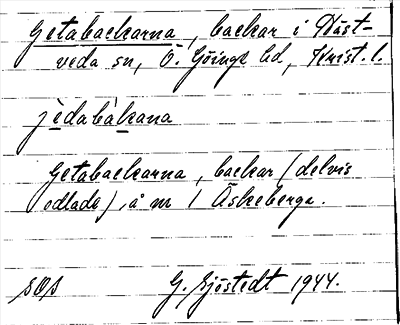 Getabackarna, backar i Häst-
veda sn, Ö. Göinge hd, Krist. l.
jèdabàkana
Getabackarna, backar (delvis
odlade), å m 1 Äskeberga.
G. Sjöstedt 1944.